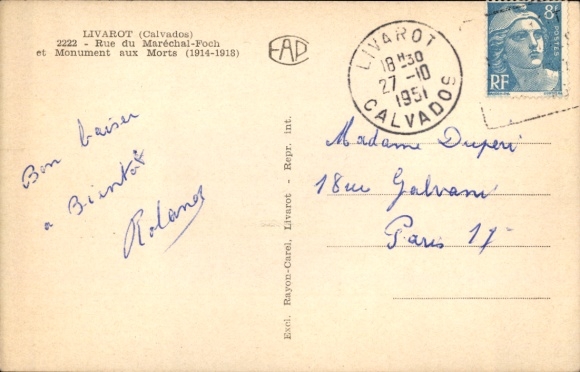 LIVAROT (Calvados)
2222 - Rue du Maréchal-Foch
et Monument aux Morts (1914-1918)
EAP
LIVAROT
18H30
27-10
1951
CALVADOS
8F
POSTES
RF
Bon baiser
a Bientot
Roland
Excl. Rayon-Carel, Livarot - Repr. int.
Madame Duperi
18 rue Galvani
Paris 17